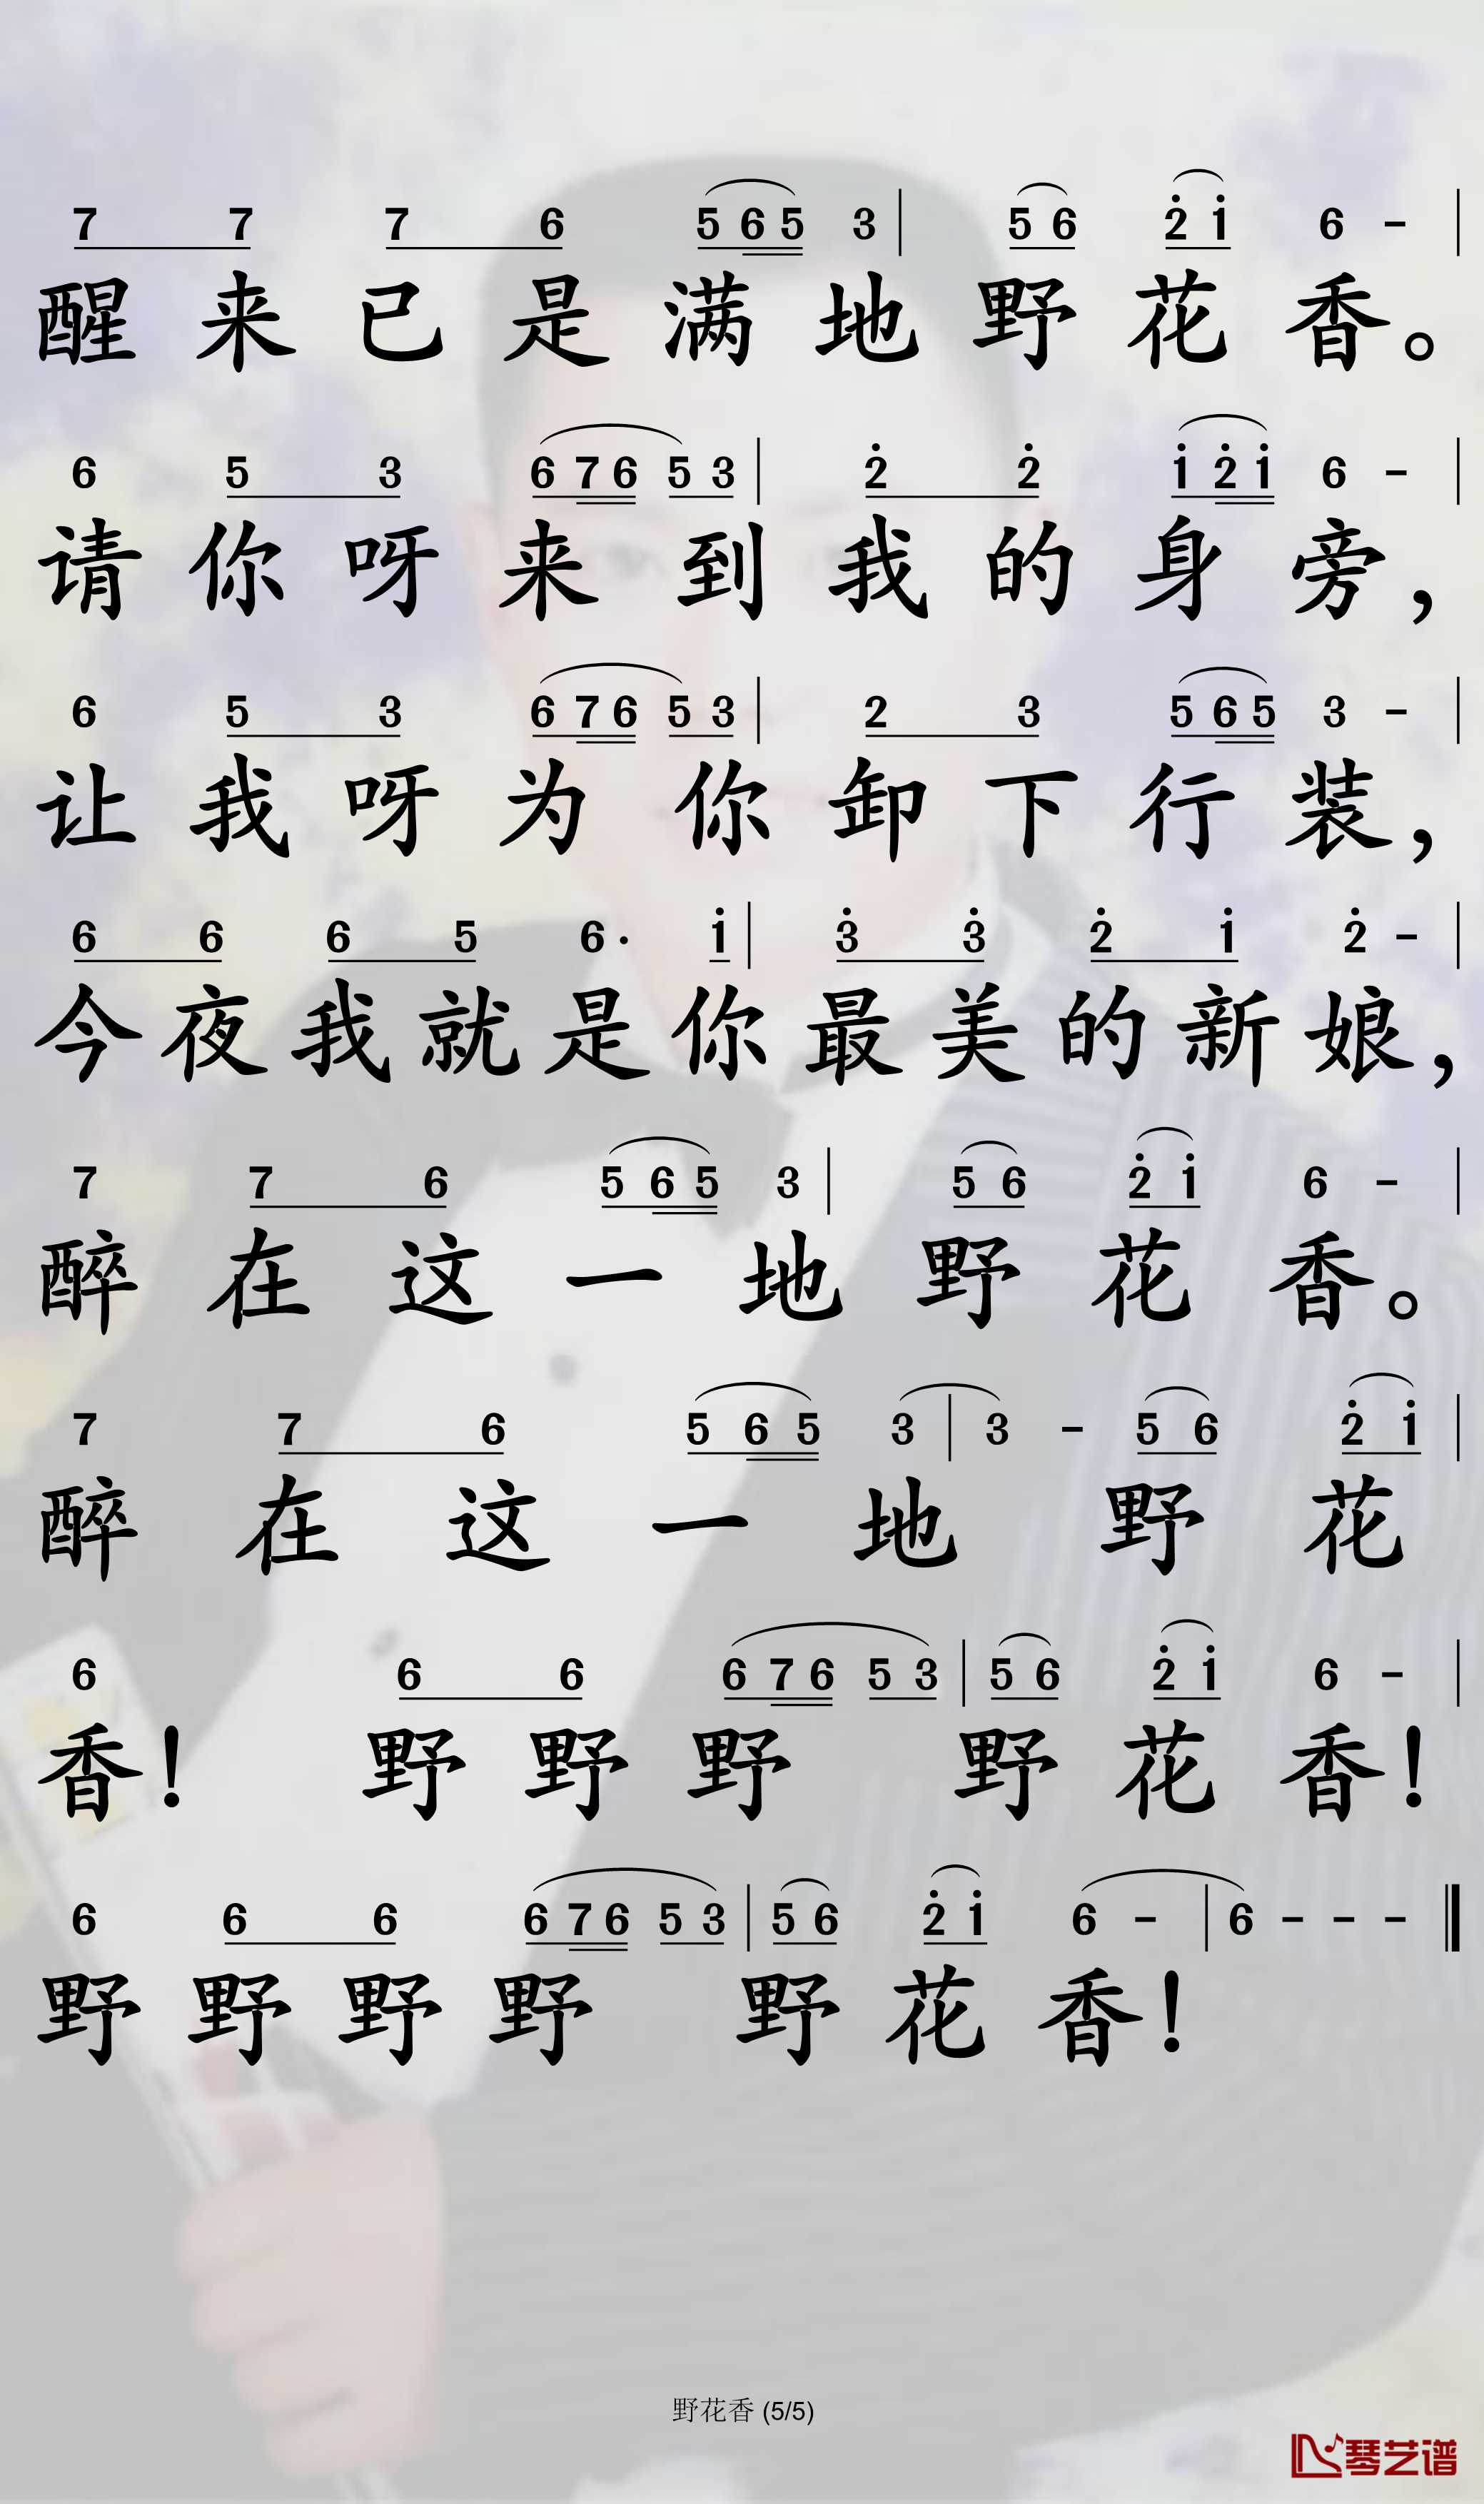 7 7 7 6 5 6 5 3 | 5 6 2̇ 1̇ 6 - |
醒来已是满地野花香。
6 5 3 6 7 6 5 3 | 2̇ 2̇ 1̇ 2̇ 1̇ 6 - |
请你呀来到我的身旁，
6 5 3 6 7 6 5 3 | 2 3 5 6 5 3 - |
让我呀为你卸下行装，
6 6 6 5 6· 1̇ | 3̇ 3̇ 2̇ 1̇ 2̇ - |
今夜我就是你最美的新娘，
7 7 6 5 6 5 3 | 5 6 2̇ 1̇ 6 - |
醉在这一地野花香。
7 7 6 5 6 5 3 | 3 - 5 6 2̇ 1̇ |
醉在这一地野花
6 6 6 6 7 6 5 3 | 5 6 2̇ 1̇ 6 - |
香！野野野野花香！
6 6 6 6 7 6 5 3 | 5 6 2̇ 1̇ 6 - | 6 - - - ‖
野野野野野花香！
野花香 (5/5)
琴艺谱